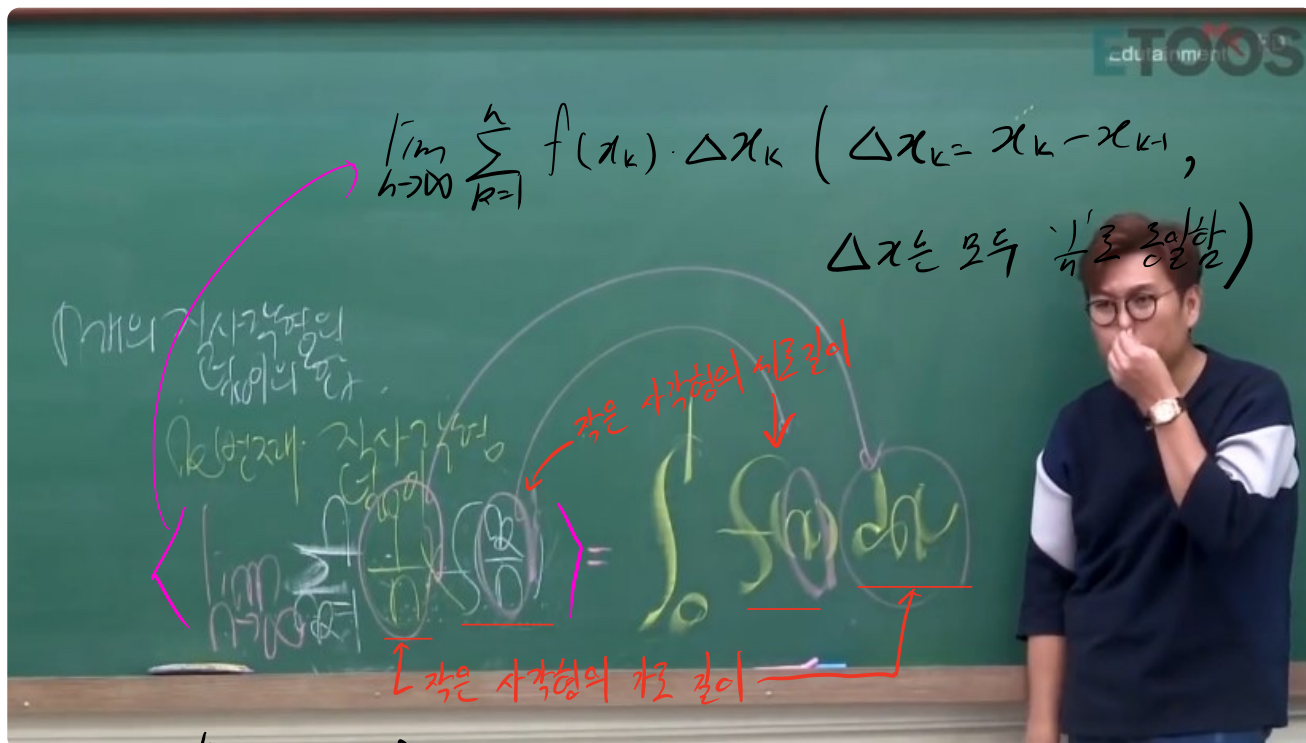 ETOOS
Edutainment
lim n→∞ Σ k=1 n f(xₖ)·Δxₖ ( Δxₖ = xₖ - xₖ₋₁ ,
Δx는 모두 1/n로 동일함 )
n개의 직사각형의
넓이의 합
k번째 직사각형
넓이
작은 사각형의 세로길이
lim n→∞ Σ k=1 n 1/n × f(k/n) = ∫₀¹ f(x) dx
작은 사각형의 가로 길이